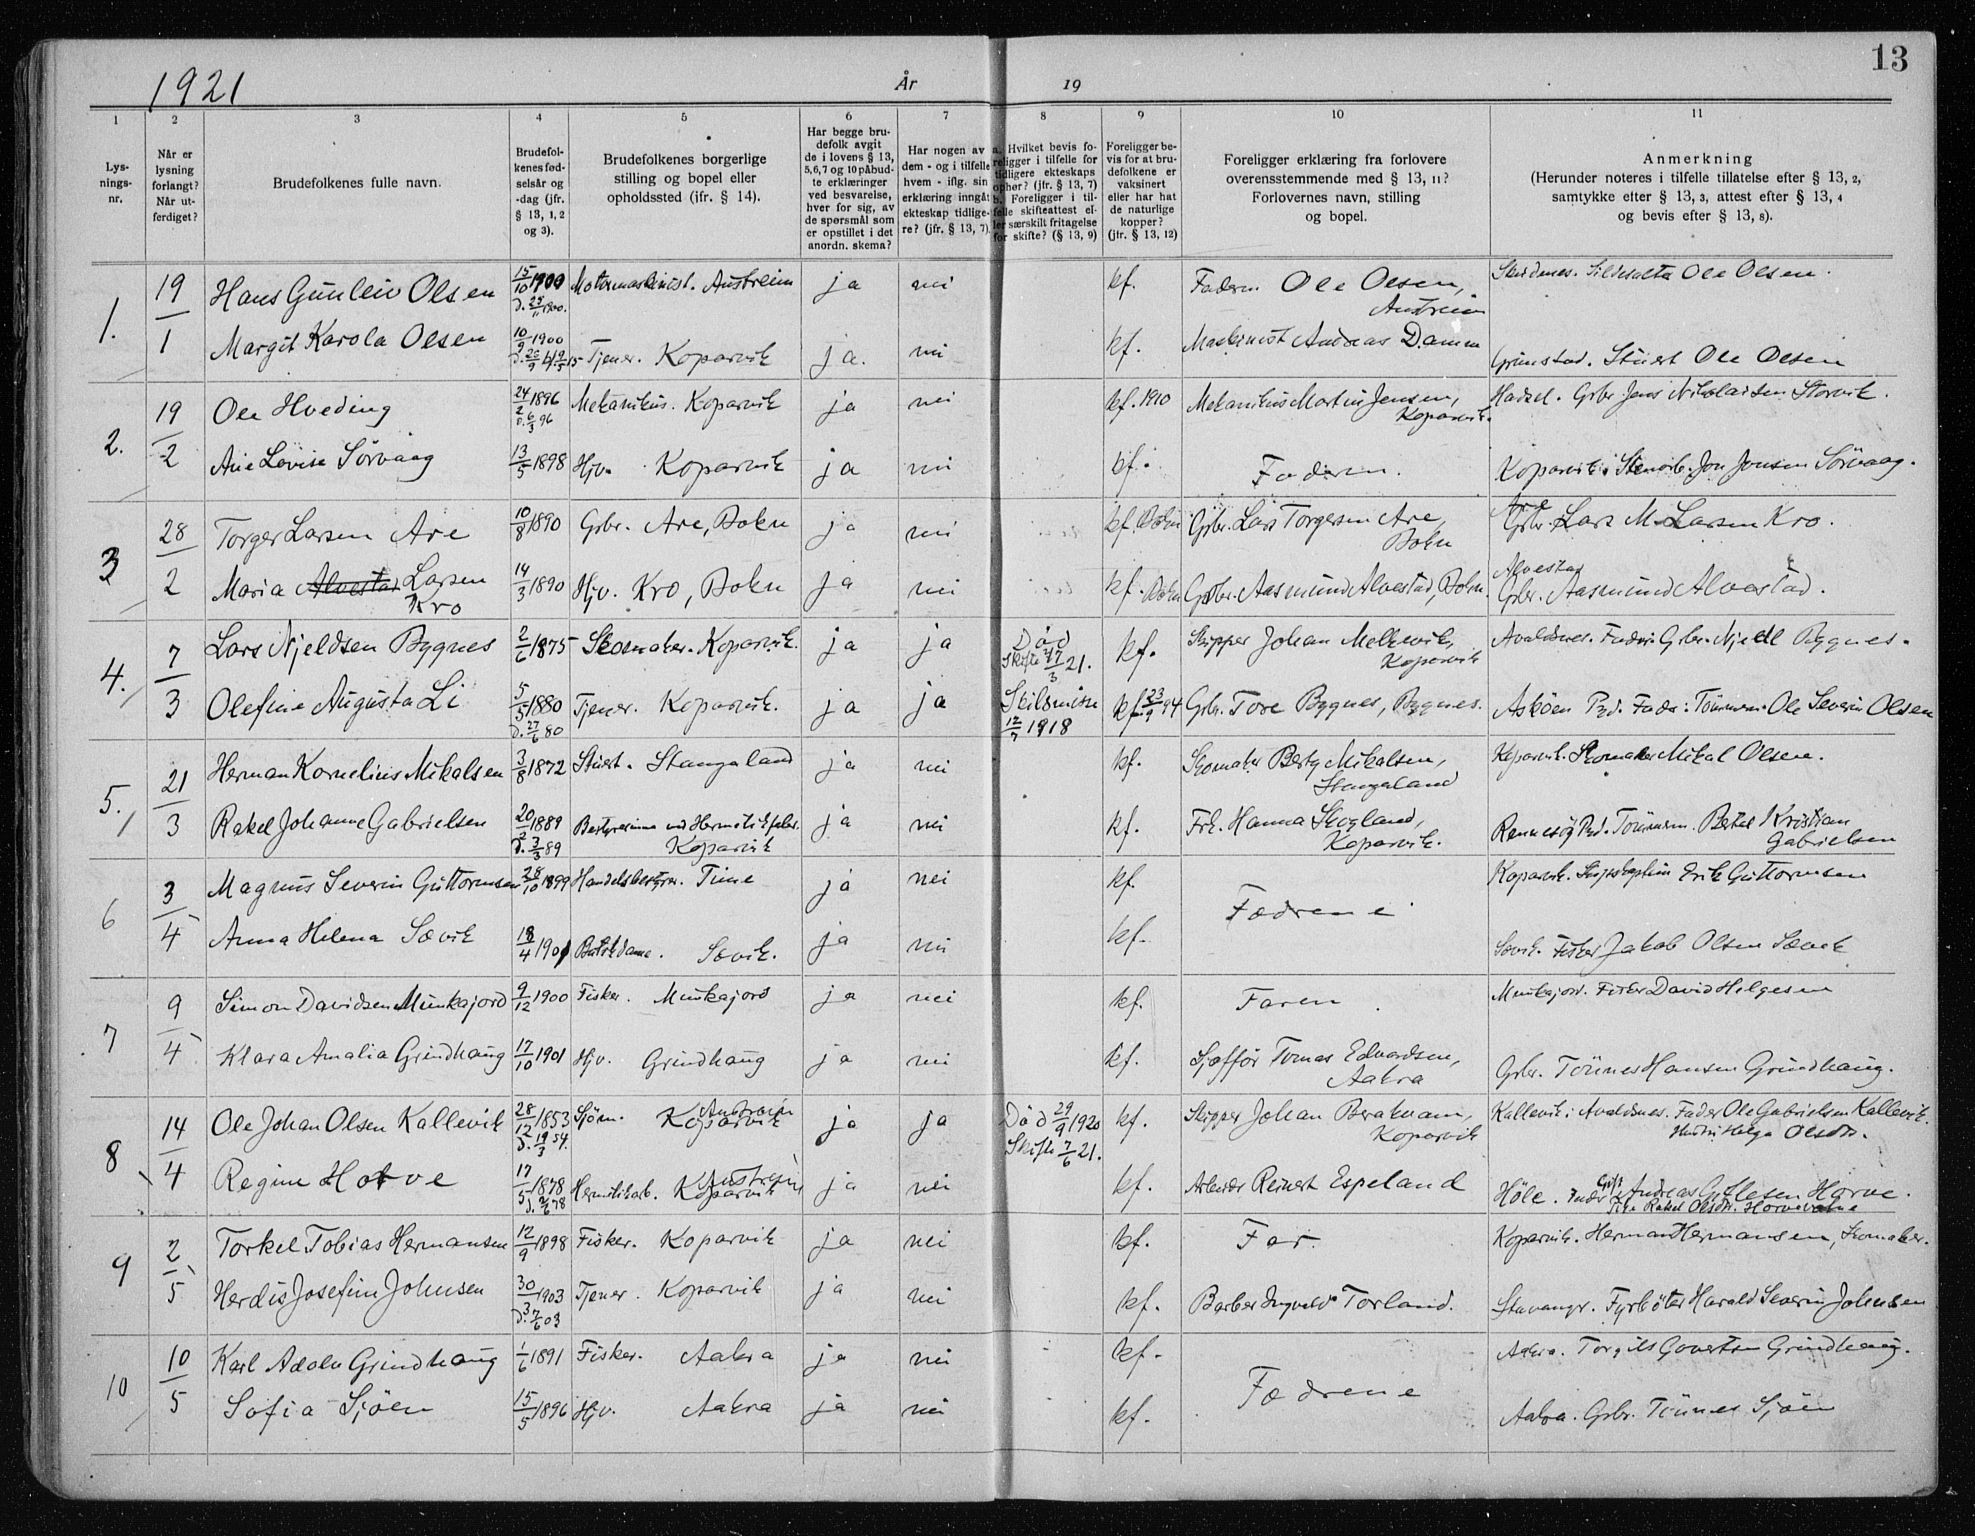 1921 År 19 13
1 2 3 4 5 6 7 8 9 10 11
Lys-
nings-
nr.
Når er
lysning
forlangt?
Når ut-
ferdiget?
Brudefolkenes fulle navn.
Brudefol-
kenes fød-
selsår og
-dag (jfr.
§ 13, 1, 2
og 3).
Brudefolkenes borgerlige
stilling og bopel eller
opholdssted (jfr. § 14).
Har begge bru-
defolk avgit
de i lovens § 13,
5,6,7 og 10 påbud-
te erklæringer
ved besvarelse,
hver for sig, av
de spørsmål som
er opstillet i det
anordn. skema?
Har nogen av
dem - og i tilfelle
hvem - iflg. sin
erklæring inngåt
ekteskap tidlige-
re? (jfr. § 13, 7).
a. Hvilket bevis fo-
religger i tilfelle for
tidligere ekteskaps
ophør? (jfr. § 13, 7)
b. Foreligger i til-
felle skifteattest el-
ler særskilt fritagelse
for skifte? (§ 13, 9)
Foreligger be-
vis for at bru-
defolkene er
vaksinert
eller har hat
de naturlige
kopper?
(jfr. § 13, 12)
Foreligger erklæring fra forlovere
overensstemmende med § 13, 11?
Forlovernes navn, stilling
og bopel.
Anmerkning
(Herunder noteres i tilfelle tillatelse efter § 13, 2,
samtykke efter § 13, 3, attest efter § 13, 4
og bevis efter § 13, 8).
1. 19/1 Hans Gunleiv Olsen 15/10 1900 Motormaskinist. Austreim ja nei kf. Faderen Ole Olsen, Skudenes. Sildesalter Ole Olsen.
Austreim
Margit Karola Olsen 10/9 1900 Tjener. Koparvik ja. nei kf. Maskinist Andreas Damm Grimstad. Stuert Ole Olsen
2. 19/2 Ole Hveding 24/2 1896 Mekanikus. Koparvik ja nei kf. 1910 Mekanikus Martin Jensen, Hadsel. Grbr. Jens Nikolaisen Storvik.
d. 6/3 96 Koparvik.
Ane Lovise Sørvaag 13/5 1898 Hjv. Koparvik ja nei kf. Faderen. Koparvik. Jon Jonsen Sørvaag.
3 28/2 Torger Larsen Are 10/8 1890 Grbr. Are, Bokn ja nei kf. Bokn Grbr. Lars Torgersen Are, Grbr. Lars M. Larsen Kro.
Bokn
Maria Alvestad Larsen 14/3 1890 Hjv. Kro, Bokn ja nei kf. Bokn Grbr. Aasmund Alvestad, Bokn. Alvestad
Kro Grbr. Aasmund Alvestad.
4. 7/3 Lars Njeldsen Bygnes 2/6 1875 Skomaker. Koparvik. ja ja Død kf. Skipper Johan Melkevik, Avaldsnes. Fader: Grbr. Njeld Bygnes.
Skifte 17/3 21. Koparvik
Olefine Augusta Li 5/5 1880 Tjener. Koparvik. ja ja Skilsmisse kf. 23/9 94 Grbr. Tore Bygnes, Bygnes. Askøen Pgd. Fader: Tømmerm. Ole Severin Olsen
d. 27/6 80 12/7 1918
5. 21/3 Herman Kornelius Mikalsen 3/8 1872 Stuert. Stangaland ja nei kf. Skomaker Berty Mikalsen, Koparvik. Skomaker Mikal Olsen.
Stangaland
Rakel Johanne Gabrielsen 20/2 1889 Bestyrerinne ved Hermetikfabr. ja nei kf. Frk. Hanna Skogland, Rennesøy Pgd. Tømmerm. Bertel Kristian
d. 3/3 89 Koparvik Koparvik. Gabrielsen
6 3/4 Magnus Severin Guttormsen 28/10 1899 Handelsbestyrer. Time ja nei kf. Fædrene Koparvik. Skipskaptein Erik Guttormsen
Anna Helena Sævik 18/4 1901 Butikdame. Sævik. ja nei kf. Sævik. Fisker Jakob Olsen Sævik
7 9/4 Simon Davidsen Munkajord 9/12 1900 Fisker. Munkajord ja nei kf. Faren. Munkajord. Fisker David Helgesen
Klara Amalia Grindhaug 17/10 1901 Hjv. Grindhaug ja nei kf. Sjaffør Tomas Edvardsen, Grbr. Tønnes Hansen Grindhaug.
Aakra
8 14/4 Ole Johan Olsen Kallevik 28/12 1853 Sjøm. Koparvik Austreim ja ja Død 29/9 1920 kf. Skipper Johan Berakvam, Kallevik i Avaldsnes. Fader Ole Gabrielsen Kallevik.
d. 19/3 54. Skifte 7/6 21. Koparvik Hustru Helga Olsdtr.
Regine Horve 17/5 1878 Hermetikarb. Koparvik Austreim ja nei kf. Arbeider Reinert Espeland Høle. Fader Andreas Gitlesen Horve.
Rakel Olsdtr.
9 2/5 Torkel Tobias Hermansen 12/9 1898 Fisker. Koparvik ja nei kf. Far. Koparvik. Herman Hermansen, Skomaker.
Herdis Josefine Johnsen 30/3 1903 Tjener. Koparvik ja nei kf. Barber Ingvald Torland. Stavanger. Fyrbøter Harald Severin Johnsen
d. 7/6 03
10 10/5 Karl Adolv Grindhaug 1/6 1891 Fisker. Aakra ja nei kf. Fædrene Aakra. Torgils Govertsen Grindhaug.
Sofia Sjøen 15/5 1896 Hjv. Aakra ja nei kf. Aakra. Grbr. Tønnes Sjøen